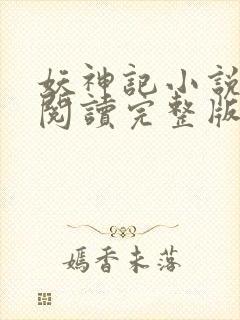 妖神記小說
閱讀完整版
嫣香未落